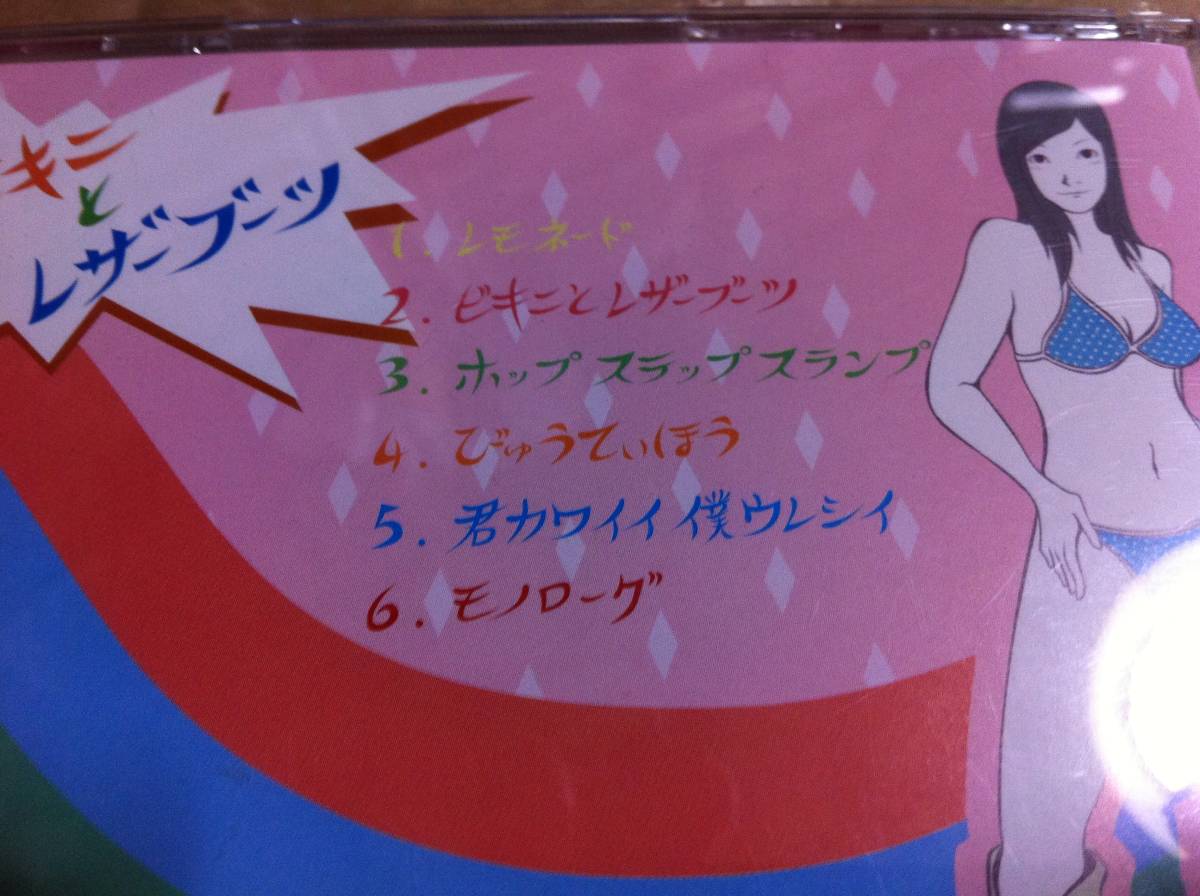 キニ
と
レザーブーツ
1. レモネード
2. ビキニとレザーブーツ
3. ホップ スラップ スランプ
4. びゅうてぃほう
5. 君カワイイ 僕ウレシイ
6. モノローグ